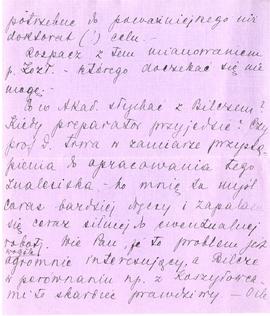 potrzebne do poważniejszego niż
doktorat (!) celu. -
Rozpacz z tem mianowaniem
p. Kozł. - którego doczekać się nie
mogę. -
Co w Akad. słychać z Bilczem?
Kiedy preparator przyjedzie? Czy
prof. D. ma zamiarze przystą-
pienia do opracowania tego
znaleziska - bo mnie ta myśl
coraz bardziej nęci i zapala
się coraz silniej do ewentualnej
roboty. Wie Pan, że to problem jest
wogóle
ogromnie interesujący, a Bilcze
w porównaniu np. z Koszyłowca-
mi to skarbiec prawdziwy - O ile